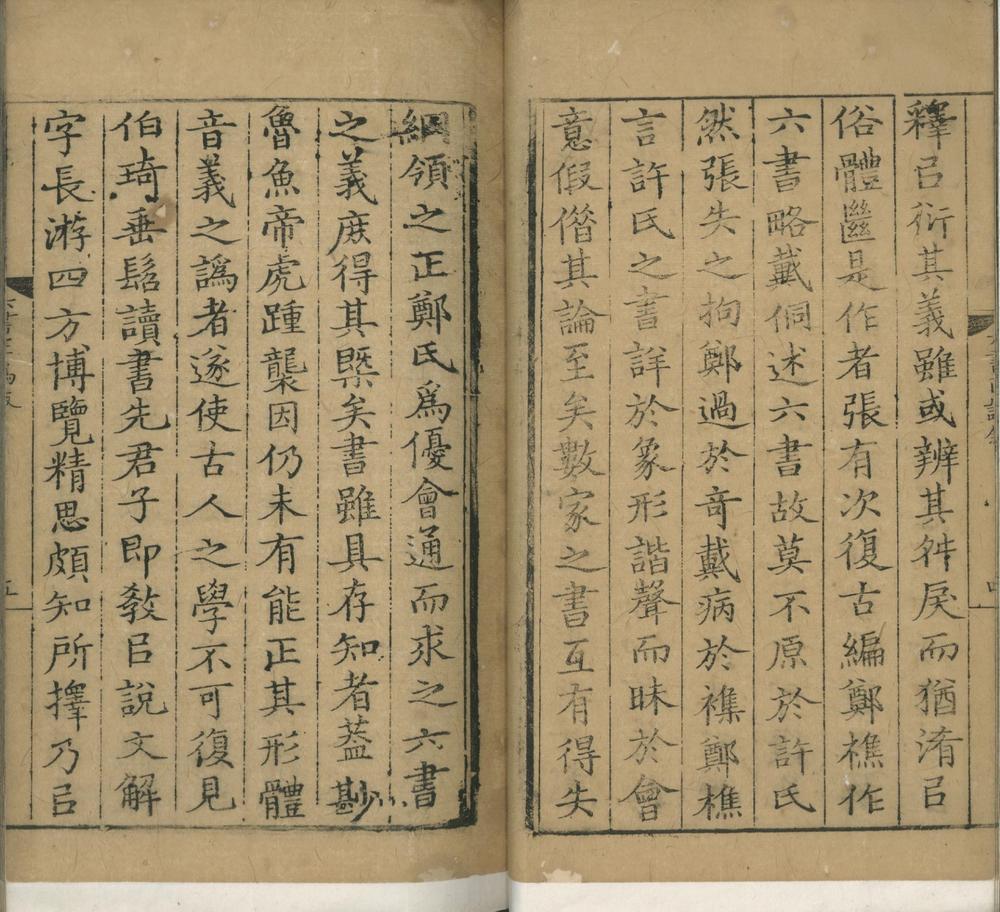 釋㠯衍其義雖或辨其舛戾而猶淆㠯
俗體䌛是作者張有次復古編鄭樵作
六書略戴侗述六書故莫不原於許氏
然張失之拘鄭過於竒戴病於襍鄭樵
言許氏之書詳於象形諧聲而昧於會
意假借其論至矣數家之書互有得失
綱領之正鄭氏爲優會通而求之六書
之義庶得其槩矣書雖具存知者葢尠
魯魚帝虎踵襲因仍未有能正其形體
音義之譌者遂使古人之學不可復見
伯琦垂髫讀書先君子即敎㠯說文解
字長游四方博覽精思頗知所擇乃㠯